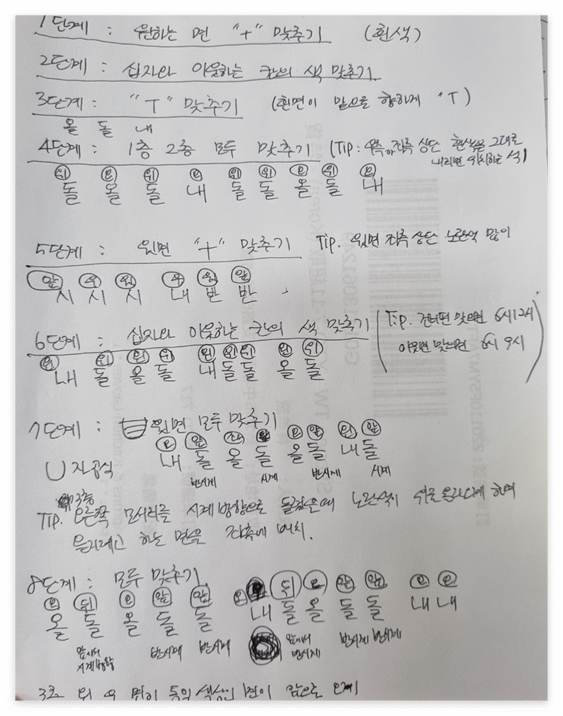 1단계 : 원하는 면 "+" 맞추기 (흰색)
2단계 : 십자와 이웃하는 칸의 색 맞추기
3단계 : "T" 맞추기 (흰면이 밑으로 향하게 "T)
올 돌 내
4단계 : 1층 2층 모두 맞추기 (Tip : 상단 흰색을 그대로
내리면 위치하는 색)
뒤 오 뒤 오 뒤 뒤 오 뒤 오
돌 올 돌 내 돌 돌 올 돌 내
5단계 : 윗면 "十" 맞추기 Tip. 윗면 좌측 상단 노란색 많이
앞 우 위 우 위 앞
시 시 시 내 반 반
6단계 : 십자와 이웃하는 칸의 색 맞추기 (Tip. 건너편 맞으면 6시 12시
이웃면 맞으면 6시 9시)
내 돌 올 돌 내 돌 돌 올 돌
7단계 : 윗면 모두 맞추기
내 돌 올 돌 올 돌 내 돌
U자공식 반시계 시계 반시계 시계
3층
TIP. 오른쪽 모서리를 시계방향으로 돌렸을때 노란색이 위로 올라오게 하며
올리려고 하는 면은 좌측에 위치.
8단계 : 모두 맞추기
오 뒤 오 앞 앞 오 뒤 오 앞 앞 오 오
올 돌 올 돌 돌 내 돌 올 돌 돌 내 내
앞에서 시계방향 반시계 반시계 앞에서 반시계 반시계 반시계